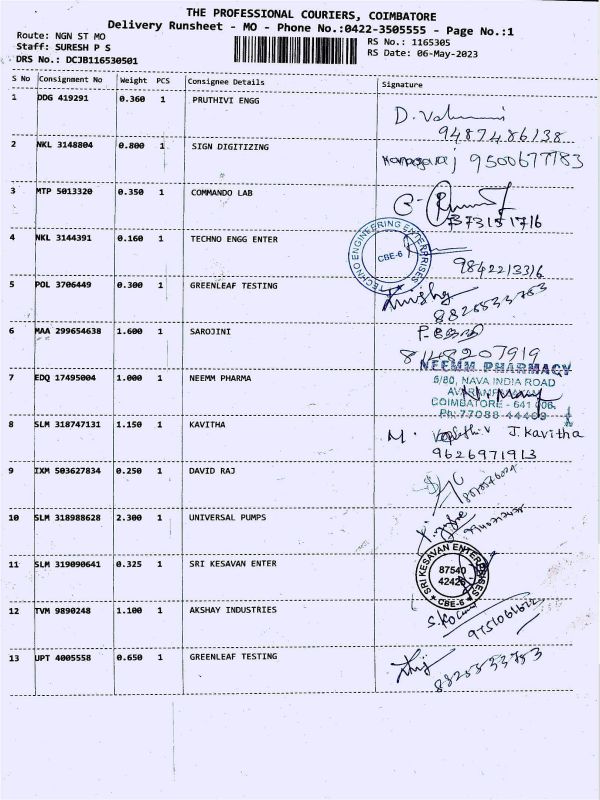 THE PROFESSIONAL COURIERS, COIMBATORE
Delivery Runsheet - MO - Phone No.:0422-3505555 - Page No.:1
Route: NGN ST MO
RS No.: 1165305
Staff: SURESH P S
RS Date: 06-May-2023
DRS No.: DCJB116530501
S No Consignment No Weight PCS Consignee Details Signature
1 DDG 419291 0.360 1 PRUTHIVI ENGG
9487486138
2 NKL 3148804 0.800 1 SIGN DIGITIZING
9500677783
3 MTP 5013320 0.350 1 COMMANDO LAB
4 NKL 3144391 0.160 1 TECHNO ENGG ENTER
TECHNO ENGINEERING ENTERPRISES
CBE-6
9842213316
5 POL 3706449 0.300 1 GREENLEAF TESTING
8825533753
6 MAA 299654638 1.600 1 SAROJINI
8148207919
7 EDQ 17495004 1.000 1 NEEMM PHARMA
NEEMM PHARMACY
NAVA INDIA ROAD
COIMBATORE - 641 006.
Ph: 77088 44463
8 SLM 318747131 1.150 1 KAVITHA
M. J. Kavitha
9626971913
9 IXM 503627834 0.250 1 DAVID RAJ
10 SLM 318988628 2.300 1 UNIVERSAL PUMPS
11 SLM 319090641 0.325 1 SRI KESAVAN ENTER
SRI KESAVAN ENTERPRISES
87540
42426
CBE-6
12 TVM 9890248 1.100 1 AKSHAY INDUSTRIES
13 UPT 4005558 0.650 1 GREENLEAF TESTING
8825533753